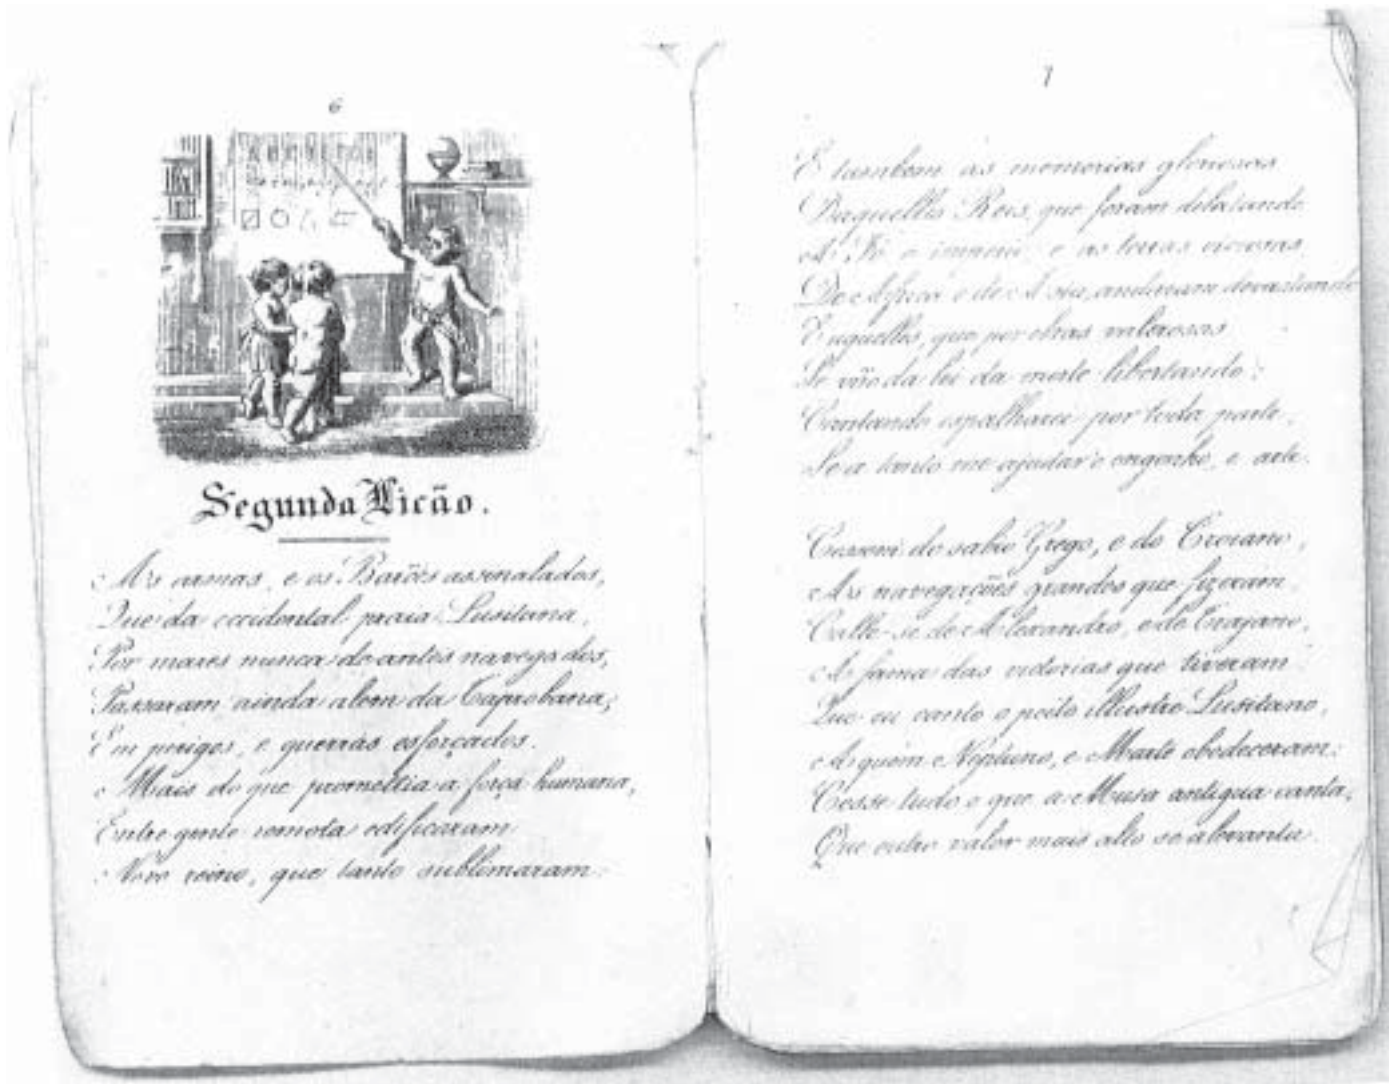 6
Segunda Lição.
As armas, e os Barões assinalados,
Que da occidental praia Lusitana,
Por mares nunca de antes navegados,
Passaram ainda alem da Taprobana;
Em perigos, e guerras esforçados.
Mais do que promettia a força humana,
Entre gente remota edificaram
Novo reino, que tanto sublimaram:
7
E tambem as memorias gloriosas
Daquelles Reis, que foram dilatando
A Fé o imperio, e as terras viciosas
De Africa e de Asia, andaram devastando
E aquelles, que por obras valerosas
Se vão da lei da morte libertando:
Cantando espalharei por toda parte,
Se a tanto me ajudar o engenho, e arte.
Cessem do sabio Grego, e do Troiano,
As navegações grandes que fizeram,
Calle-se de Alexandro, e de Trajano,
A fama das victorias que tiveram
Que eu canto o peito illustre Lusitano,
A quem Neptuno, e Marte obedeceram:
Cesse tudo o que a Musa antigua canta,
Que outro valor mais alto se alevanta.